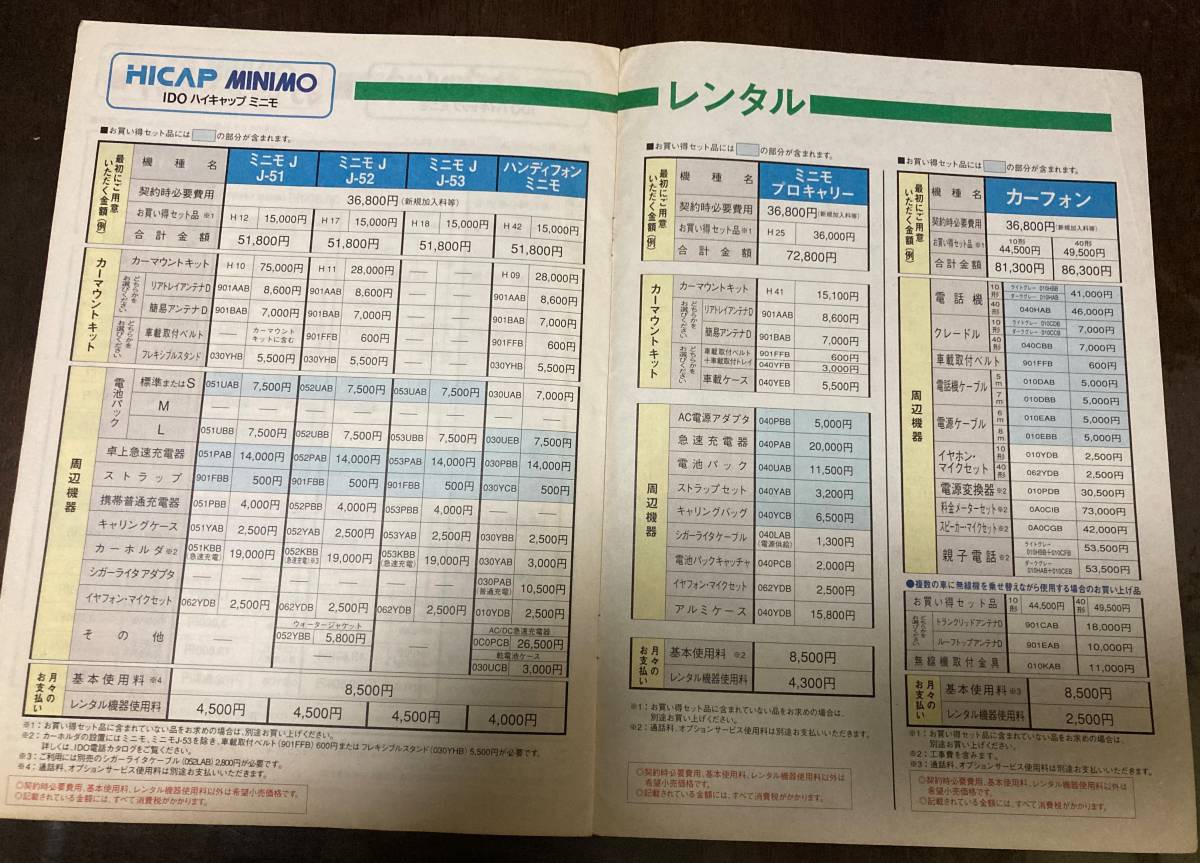 HICAP MINIMO
IDO ハイキャップ ミニモ
レンタル
■お買い得セット品には の部分が含まれます。
最初にご用意いただく金額(例)
機種名 ミニモ J J-51 ミニモ J J-52 ミニモ J J-53 ハンディフォン ミニモ
契約時必要費用 36,800円(新規加入料等)
お買い得セット品 ※1 H 12 15,000円 H 17 15,000円 H 18 15,000円 H 42 15,000円
合計金額 51,800円 51,800円 51,800円 51,800円
カーマウントキット
カーマウントキット H 10 75,000円 H 11 28,000円 — — H 09 28,000円
どちらかをお選びください
リアトレイアンテナD 901AAB 8,600円 901AAB 8,600円 — — 901AAB 8,600円
簡易アンテナD 901BAB 7,000円 901BAB 7,000円 — — 901BAB 7,000円
どちらかをお選びください
車載取付ベルト — カーマウントキットに含む 901FFB 600円 — — 901FFB 600円
フレキシブルスタンド 030YHB 5,500円 030YHB 5,500円 — — 030YHB 5,500円
周辺機器
電池パック
標準またはS 051UAB 7,500円 052UAB 7,500円 053UAB 7,500円 030UAB 7,000円
M — — — — — — — —
L 051UBB 7,500円 052UBB 7,500円 053UBB 7,500円 030UEB 7,500円
卓上急速充電器 051PAB 14,000円 052PAB 14,000円 053PAB 14,000円 030PBB 14,000円
ストラップ 901FBB 500円 901FBB 500円 901FBB 500円 030YCB 500円
携帯普通充電器 051PBB 4,000円 052PBB 4,000円 053PBB 4,000円 — —
キャリングケース 051YAB 2,500円 052YAB 2,500円 053YAB 2,500円 030YBB 2,500円
カーホルダ※2 051KBB (急速充電) 19,000円 052KBB (急速充電)※3 19,000円 053KBB (急速充電) 19,000円 030YAB 3,000円
シガーライタアダプタ — — — — — — 030PAB (普通充電) 10,500円
イヤフォン・マイクセット 062YDB 2,500円 062YDB 2,500円 062YDB 2,500円 010YDB 2,500円
その他 — ウォータージャケット 052YBB 5,800円 — AC/DC急速充電器 0C0PCB 26,500円
乾電池ケース 030UCB 3,000円
月々のお支払い
基本使用料※4 8,500円
レンタル機器使用料 4,500円 4,500円 4,500円 4,000円
※1：お買い得セット品に含まれていない品をお求めの場合は、別途お買い上げください。
※2：カーホルダの設置にはミニモ、ミニモJ-53を除き、車載取付ベルト(901FFB) 600円またはフレキシブルスタンド(030YHB) 5,500円が必要です。
詳しくは、IDO電話カタログをご覧ください。
※3：ご利用には別売のシガーライタケーブル(052LAB) 2,800円が必要です。
※4：通話料、オプションサービス使用料は別途お支払いいただきます。
◎契約時必要費用、基本使用料、レンタル機器使用料以外は希望小売価格です。
◎記載されている金額には、すべて消費税がかかります。
■お買い得セット品には の部分が含まれます。
最初にご用意いただく金額(例)
機種名 ミニモ プロキャリー
契約時必要費用 36,800円(新規加入料等)
お買い得セット品※1 H 25 36,000円
合計金額 72,800円
カーマウントキット
カーマウントキット H 41 15,100円
どちらかをお選びください
リアトレイアンテナD 901AAB 8,600円
簡易アンテナD 901BAB 7,000円
どちらかをお選びください
車載取付ベルト 901FFB 600円
+車載取付トレイ 040YFB 3,000円
車載ケース 040YEB 5,500円
周辺機器
AC電源アダプタ 040PBB 5,000円
急速充電器 040PAB 20,000円
電池パック 040UAB 11,500円
ストラップセット 040YAB 3,200円
キャリングバッグ 040YCB 6,500円
シガーライタケーブル 040LAB (電源供給) 1,300円
電池パックキャッチャ 040PCB 2,000円
イヤフォン・マイクセット 062YDB 2,500円
アルミケース 040YDB 15,800円
月々のお支払い
基本使用料 ※2 8,500円
レンタル機器使用料 4,300円
※1：お買い得セット品に含まれていない品をお求めの場合は、
別途お買い上げください。
※2：通話料、オプションサービス使用料は別途お支払いいただきます。
◎契約時必要費用、基本使用料、レンタル機器使用料以外は
希望小売価格です。
◎記載されている金額には、すべて消費税がかかります。
■お買い得セット品には の部分が含まれます。
最初にご用意いただく金額(例)
機種名 カーフォン
契約時必要費用 36,800円(新規加入料等)
お買い得セット品 ※1 10形 44,500円 40形 49,500円
合計金額 81,300円 86,300円
周辺機器
電話機 10形 ライトグレー 010HBB ダークグレー 010HAB 41,000円
40形 040HAB 46,000円
クレードル 10形 ライトグレー 010CDB ダークグレー 010CCB 7,000円
40形 040CBB 7,000円
車載取付ベルト 901FFB 600円
電話機ケーブル 5m 010DAB 5,000円
7m 010DBB 5,000円
電源ケーブル 6m 010EAB 5,000円
8m 010EBB 5,000円
イヤホン・マイクセット 10形 010YDB 2,500円
40形 062YDB 2,500円
電源変換器※2 010PDB 30,500円
料金メーターセット※2 0A0CIB 73,000円
スピーカーマイクセット※2 0A0CGB 42,000円
親子電話※2 ライトグレー 010HBB+010CFB 53,500円
ダークグレー 010HAB+010CEB 53,500円
●複数の車に無線機を乗せ替えながら使用する場合のお買い上げ品
お買い得セット品 10形 44,500円 40形 49,500円
どちらかをお選びください
トランクリッドアンテナD 901CAB 18,000円
ルーフトップアンテナD 901EAB 10,000円
無線機取付金具 010KAB 11,000円
月々のお支払い
基本使用料※3 8,500円
レンタル機器使用料 2,500円
※1：お買い得セット品に含まれていない品をお求めの場合は、
別途お買い上げください。
※2：工事費を含みます。
※3：通話料、オプションサービス使用料は別途お支払いいただきます。
◎契約時必要費用、基本使用料、レンタル機器使用料以外は
希望小売価格です。
◎記載されている金額には、すべて消費税がかかります。